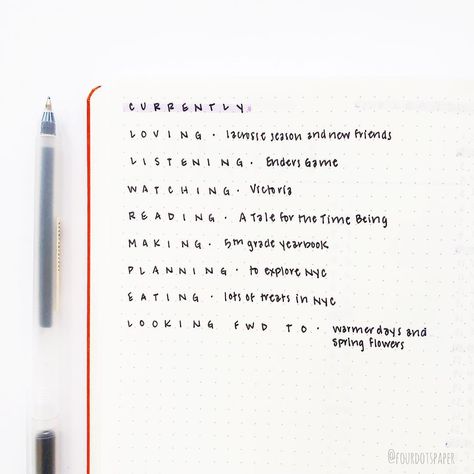 CURRENTLY
LOVING · lacrosse season and new friends
LISTENING · Enders Game
WATCHING · Victoria
READING · A Tale for the Time Being
MAKING · 5th grade yearbook
PLANNING · to explore NYC
EATING · lots of treats in NYC
LOOKING FWD TO · warmer days and
spring flowers
@FOURDOTSPAPER